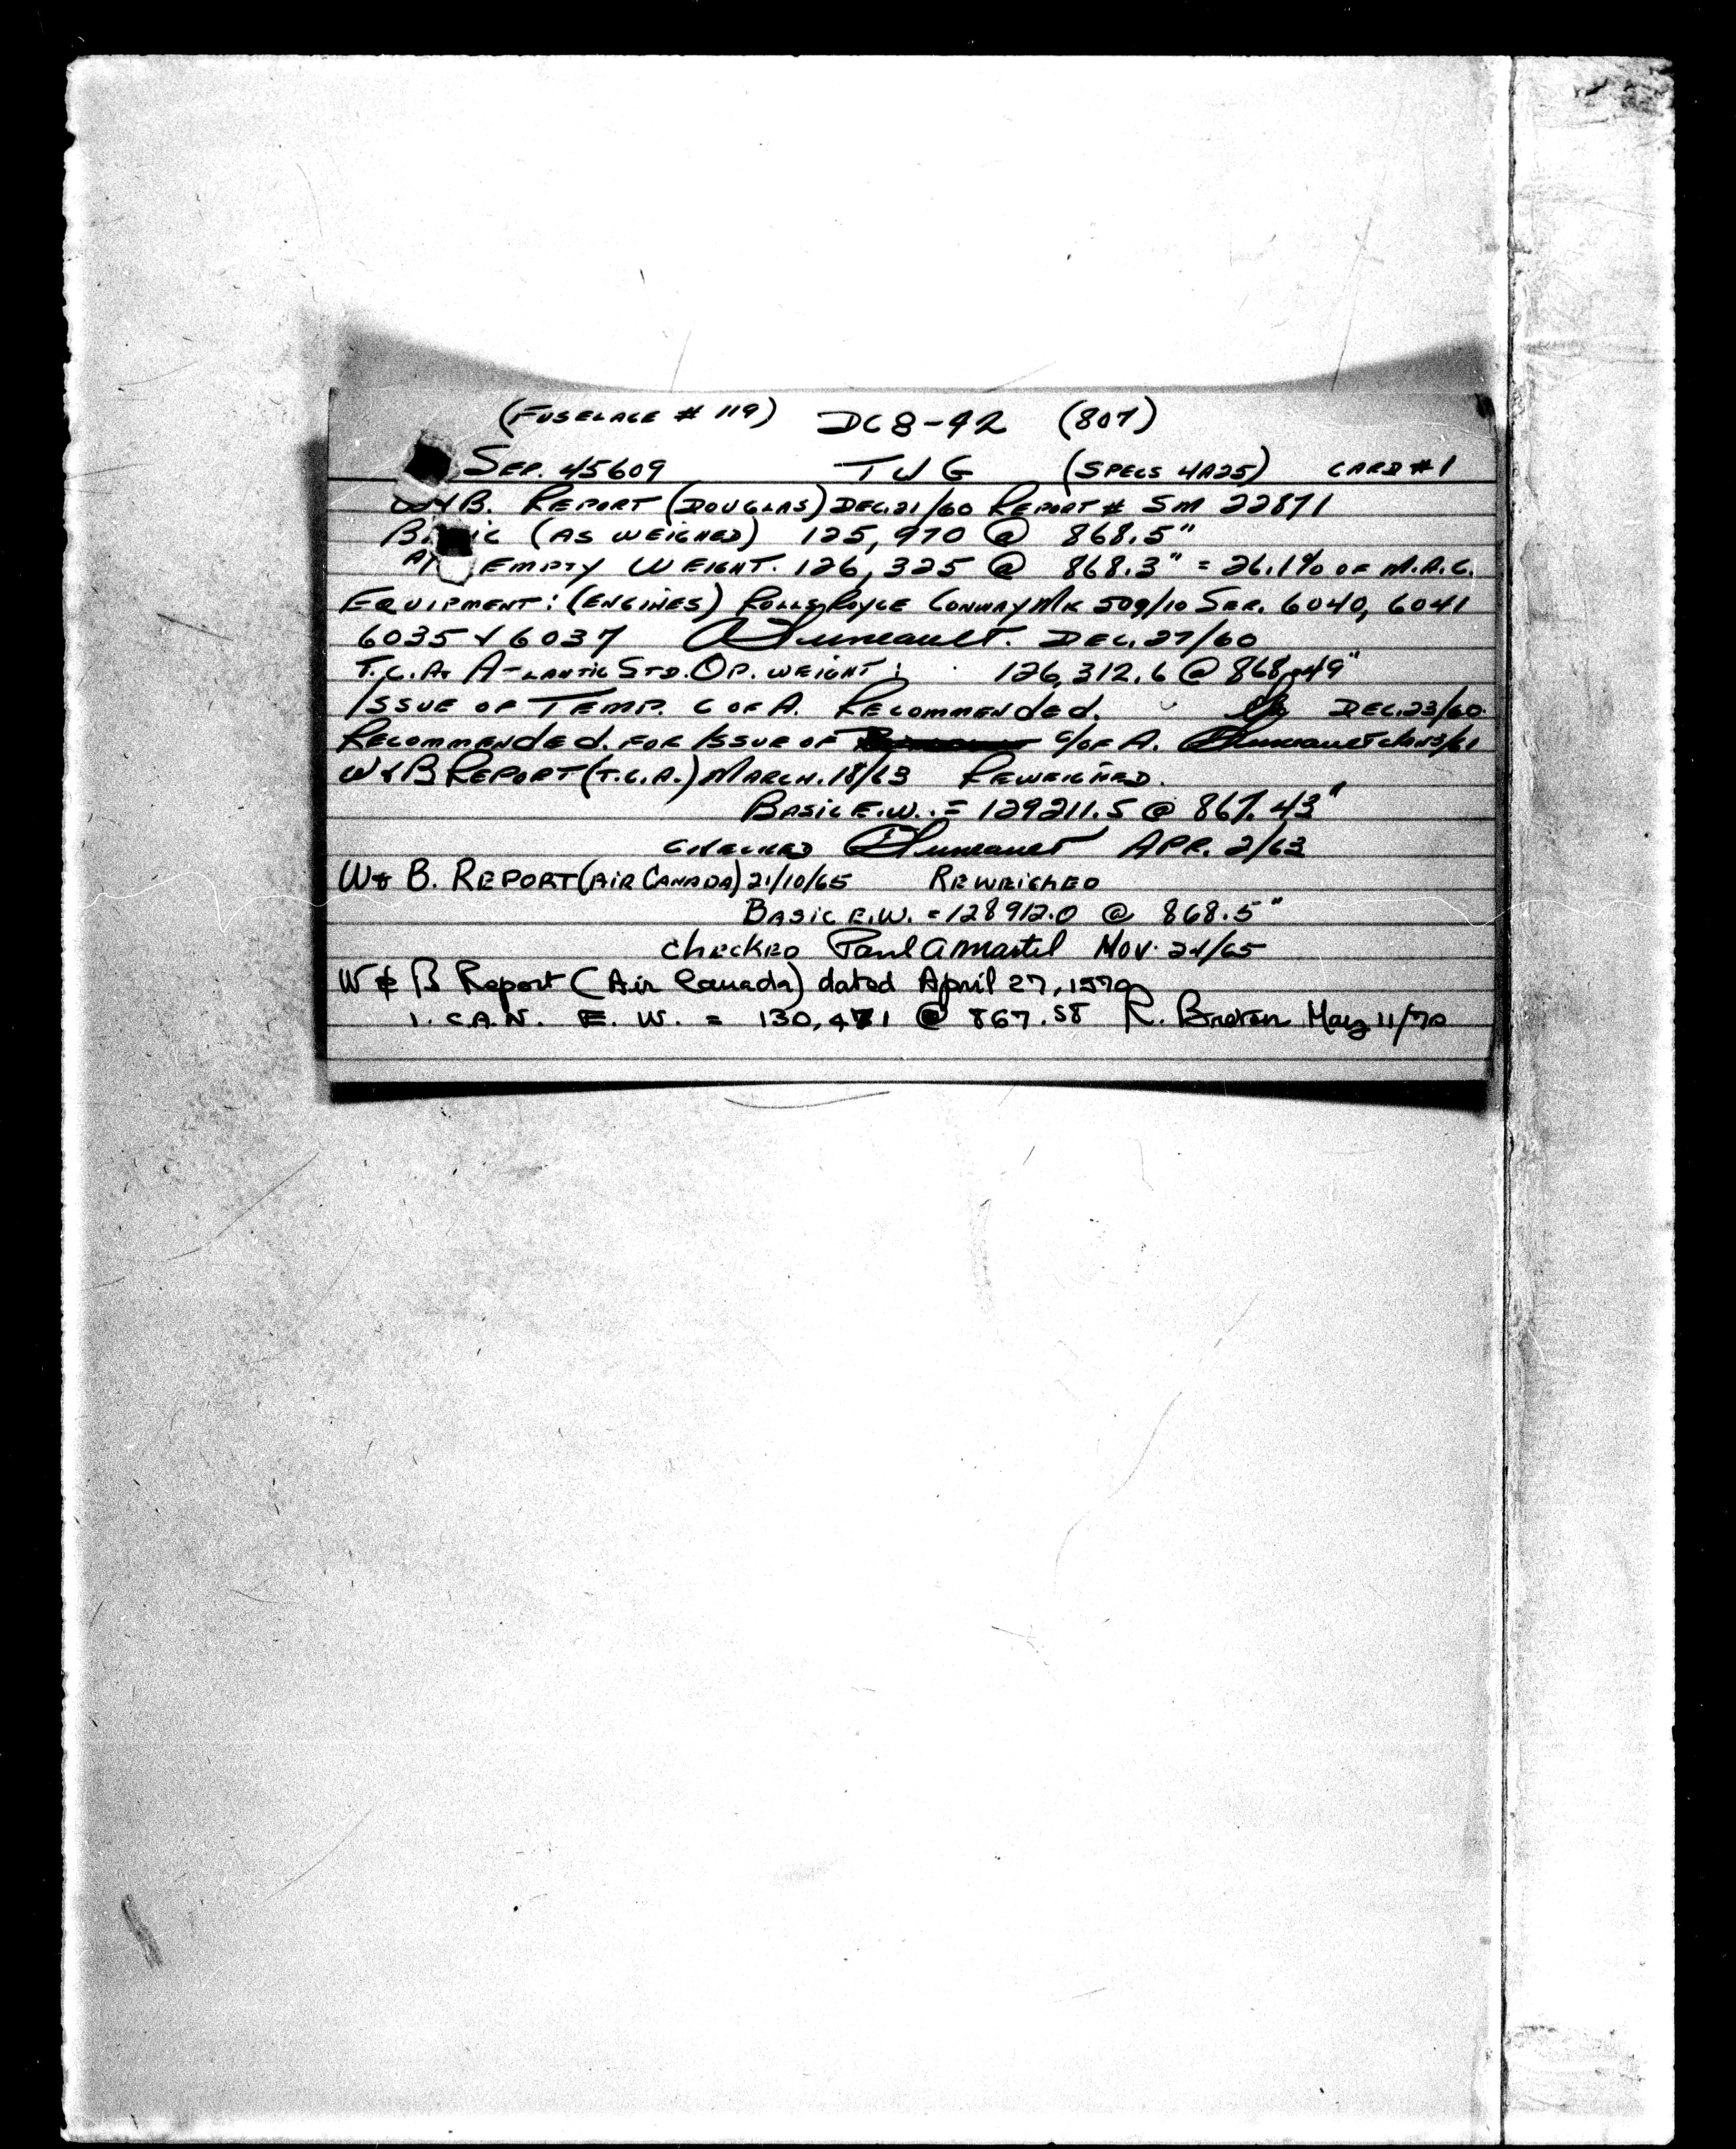 (FUSELAGE # 119) DC8-42 (807)
SER. 45609 TJG (SPECS 4A25) CARD #1
W&B. REPORT (DOUGLAS) DEC.21/60 REPORT # SM 22871
B..ic (AS WEIGHED) 125,970 @ 868.5"
EMPTY WEIGHT. 126,325 @ 868.3" = 26.1% OF M.A.C.
EQUIPMENT: (ENGINES) ROLLS ROYCE CONWAY MK 509/10 SER. 6040, 6041
6035 & 6037 DEC. 27/60
T.C.A. ATLANTIC STD. OP. WEIGHT: 126,312.6 @ 868.49"
ISSUE OF TEMP. C OF A. RECOMMENDED. DEC.23/60
RECOMMENDED. FOR ISSUE OF C/OF A.
W&B REPORT (T.C.A.) MARCH. 18/63 REWEIGHED.
BASIC E.W. = 129211.5 @ 867.43"
CHECKED APR. 2/63
W&B. REPORT (AIR CANADA) 21/10/65 REWEIGHED
BASIC E.W. = 128912.0 @ 868.5"
Checked Paul A Martel Nov. 24/65
W & B Report (Air Canada) dated April 27, 1970
I.C.A.N. E.W. = 130,471 @ 867.58 R. Breton May 11/70